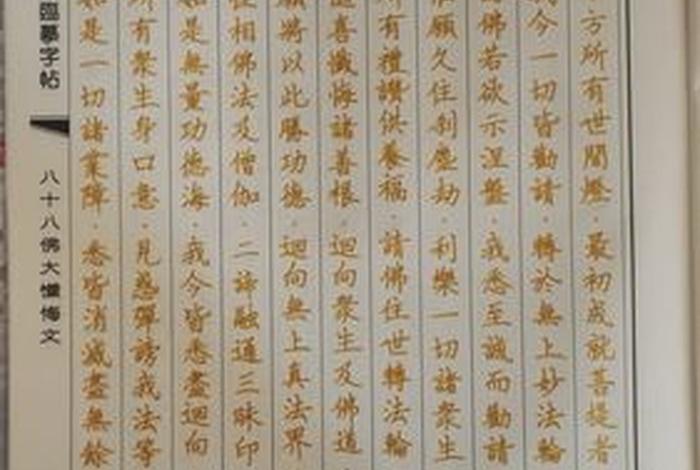 方所有世間燈·最初成就菩提者
我今一切皆勸請·轉於無上妙法輪
佛若欲示涅槃·我悉至誠而勸請
願久住剎塵劫·利樂一切諸眾生
所有禮讚供養福·請佛住世轉法輪
喜懺悔諸善根·迴向眾生及佛道
願將以此勝功德·迴向無上真法界
性相佛法及僧伽·二諦融通三昧印
如是無量功德海·我今皆悉盡迴向
所有眾生身口意·見惑彈謗我法等
如是一切諸業障·悉皆消滅盡無餘
臨摹字帖
八十八佛大懺悔文